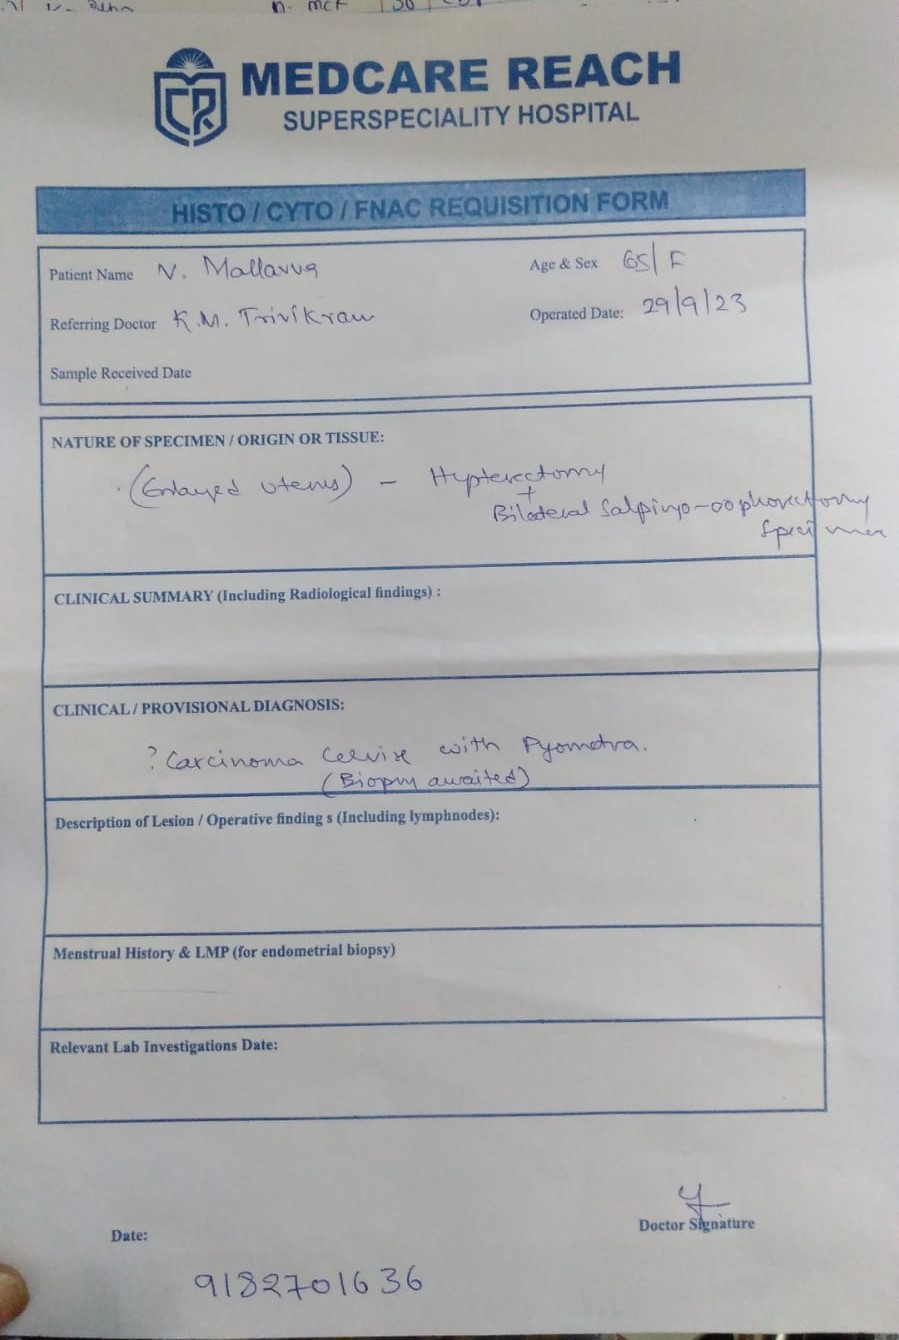 MEDCARE REACH
SUPERSPECIALITY HOSPITAL
HISTO / CYTO / FNAC REQUISITION FORM
Patient Name N. Mallavva Age & Sex 65/F
Referring Doctor K.M. Trivikram Operated Date: 29/9/23
Sample Received Date
NATURE OF SPECIMEN / ORIGIN OR TISSUE:
(Enlayed uterus) - Hypterectomy
+
Bilateral Salpingo-oophorectomy
Specimen
CLINICAL SUMMARY (Including Radiological findings) :
CLINICAL / PROVISIONAL DIAGNOSIS:
? Carcinoma Cervix with Pyometra.
(Biopsy awaited)
Description of Lesion / Operative finding s (Including lymphnodes):
Menstrual History & LMP (for endometrial biopsy)
Relevant Lab Investigations Date:
Doctor Signature
Date:
9182701636